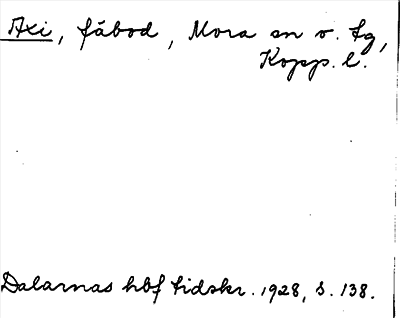 Axi, fäbod, Mora sn o. tg,
Kopp. l.
Dalarnas hbf tidskr. 1928, s. 138.